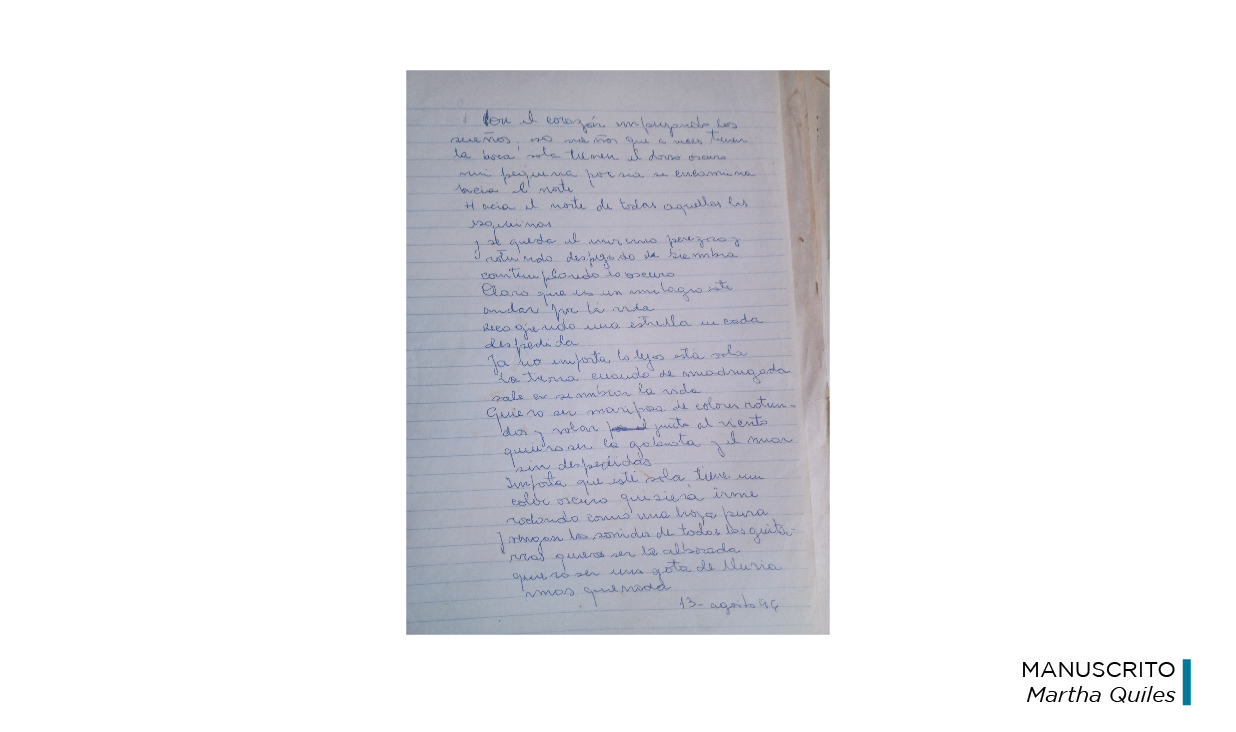 Con el corazón empezando los
sueños, so sueños que a veces tienen
la boca sola tienen el dorso oscuro
mi pequeña poesia se encamina
hacia el norte
Hacia el norte de todas aquellas las
esquinas
y se queda el invierno perezoso y
rotundo despegado de siembra
contemplando lo oscuro
Claro que es un milagro este
andar por la vida
recogiendo una estrella en cada
despedida
Ya no importa lo lejos está sola
la tierra cuando de madrugada
sale a sembrar la vida
Quiero ser mariposa de colores rotun-
dos y volar junto al viento
quiero ser la gaviota y el mar
sin despedidas
Importa que esté sola tiene un
color oscuro quisiera irme
rodando como una hoja pura
y vengan los sonidos de todas las guita-
rras quiero ser la alborada
quiero ser una gota de lluvia
mas que nada
13- agosto
MANUSCRITO
Martha Quiles